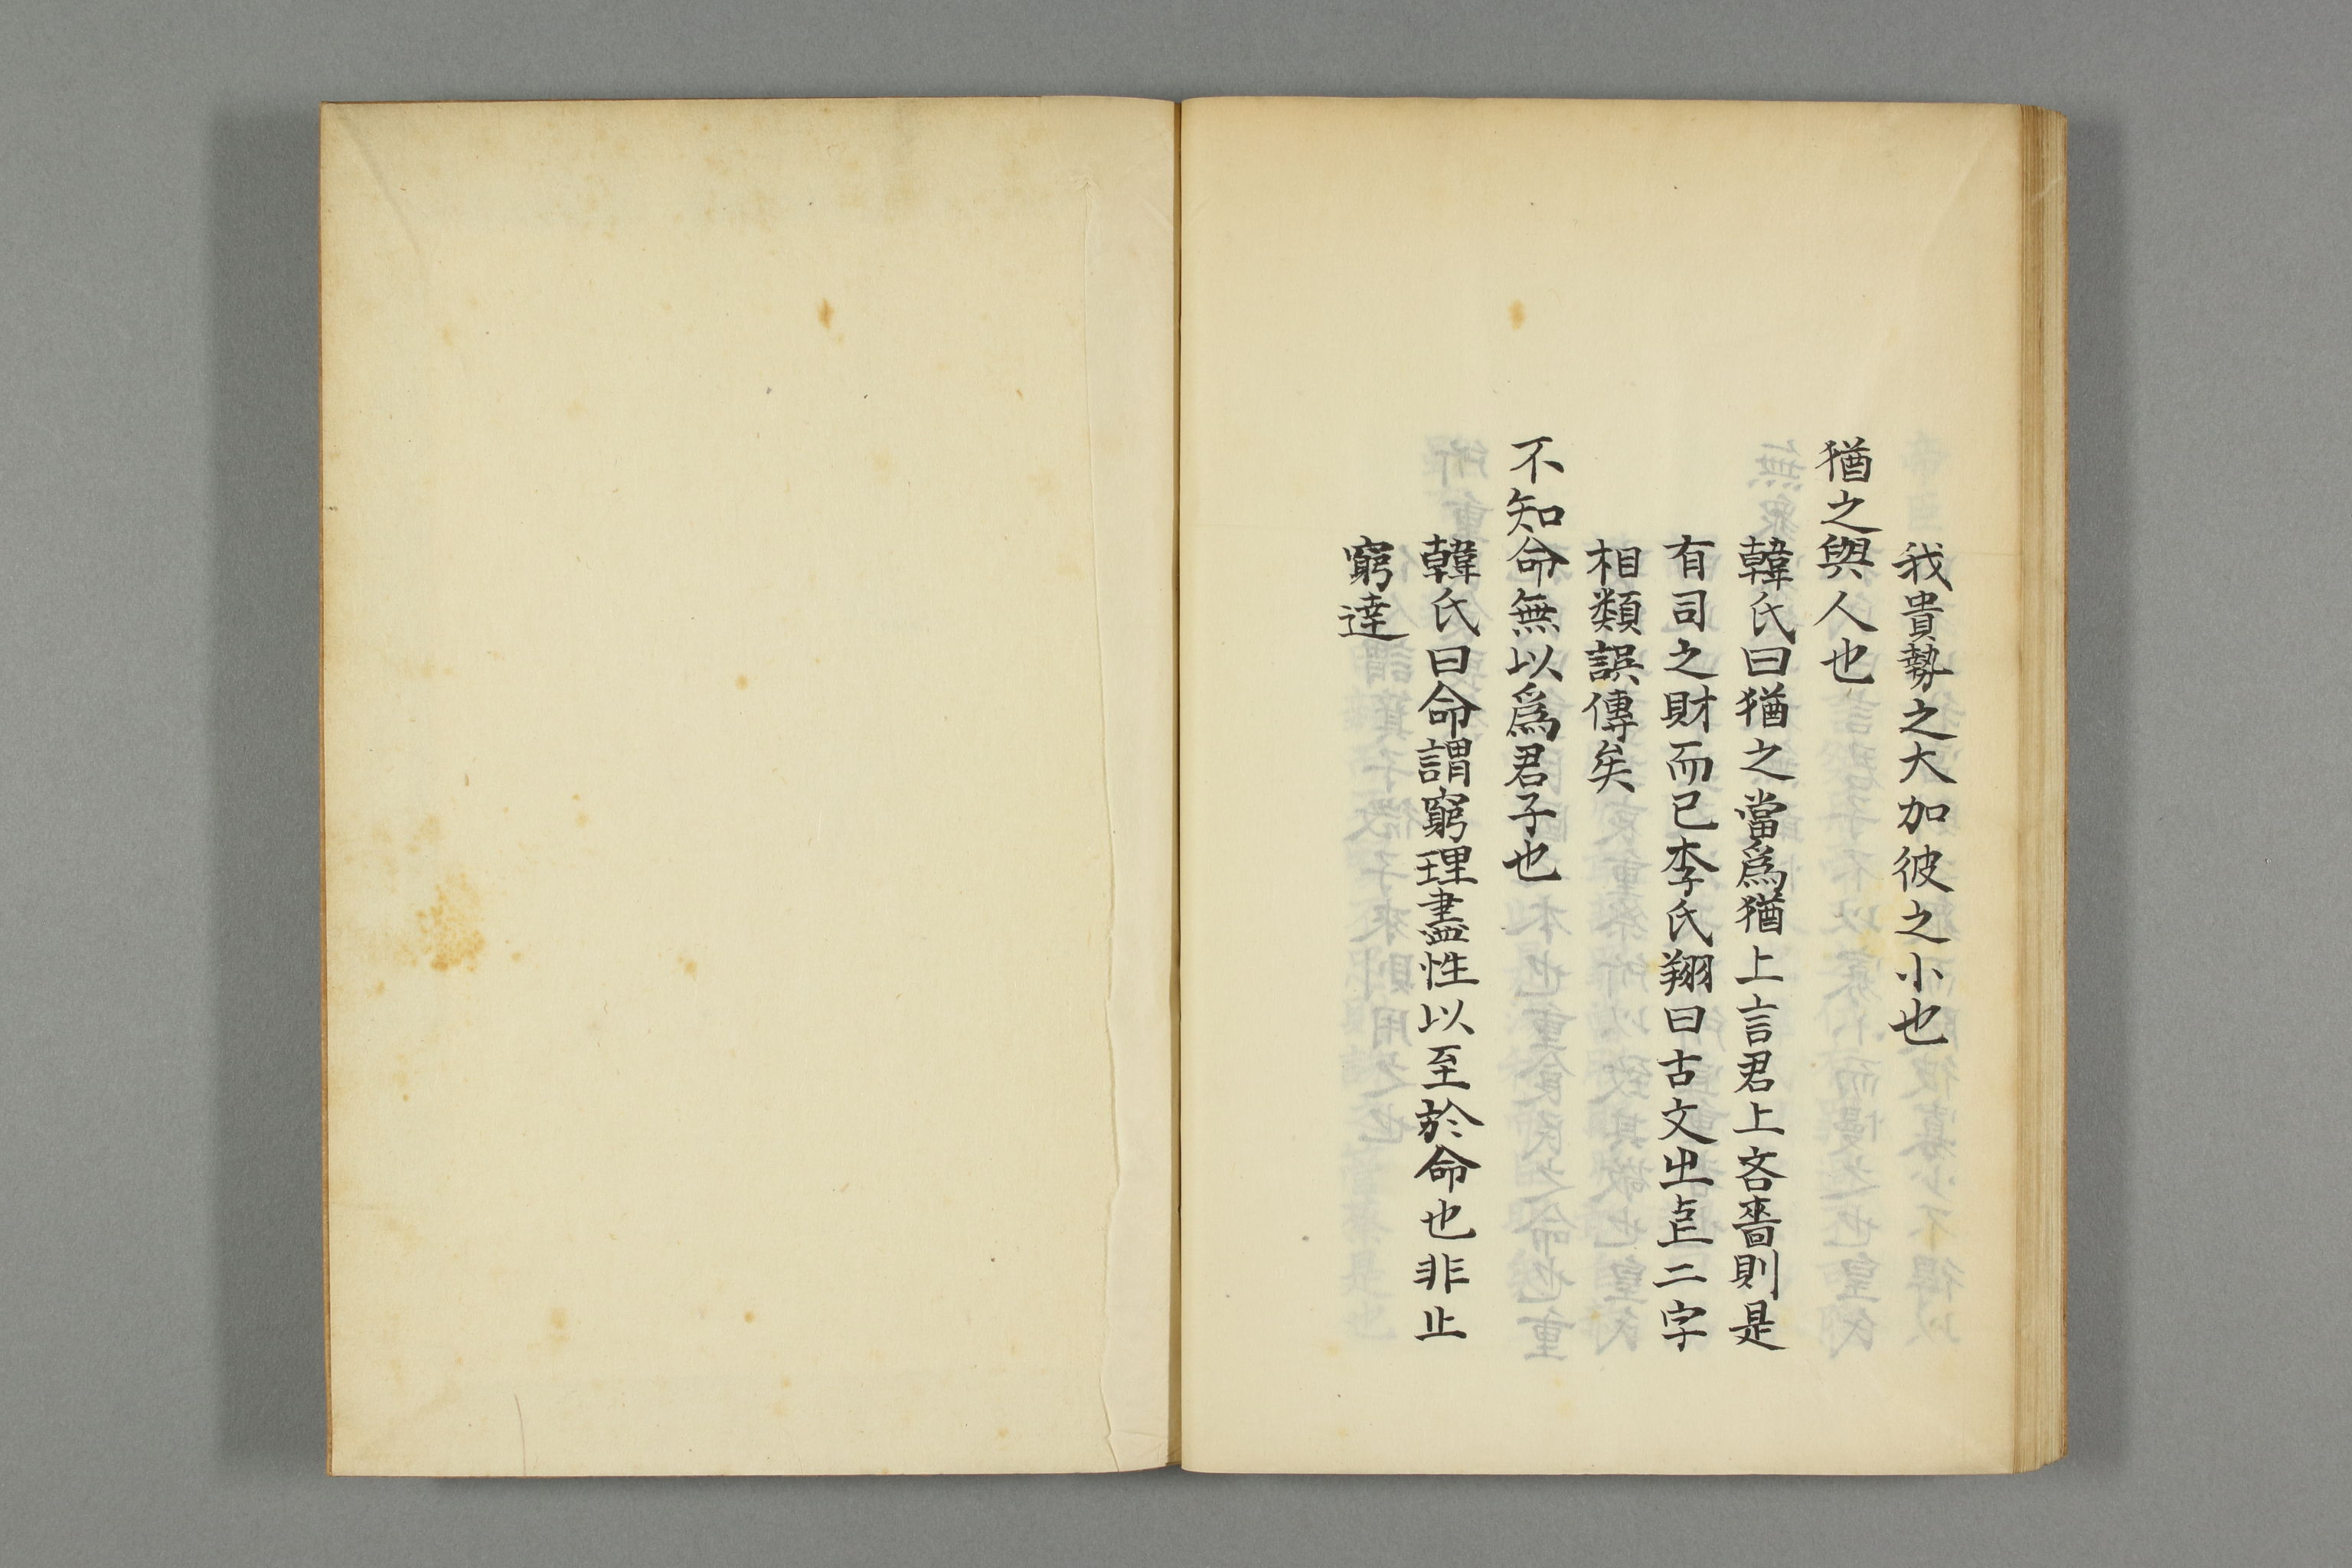 我貴勢之大加彼之小也
猶之與人也
韓氏曰猶之當爲猶上言君上吝嗇則是
有司之財而已李氏翔曰古文㞢𠄞二字
相類誤傳矣
不知命無以爲君子也
韓氏曰命謂窮理盡性以至於命也非止
窮達